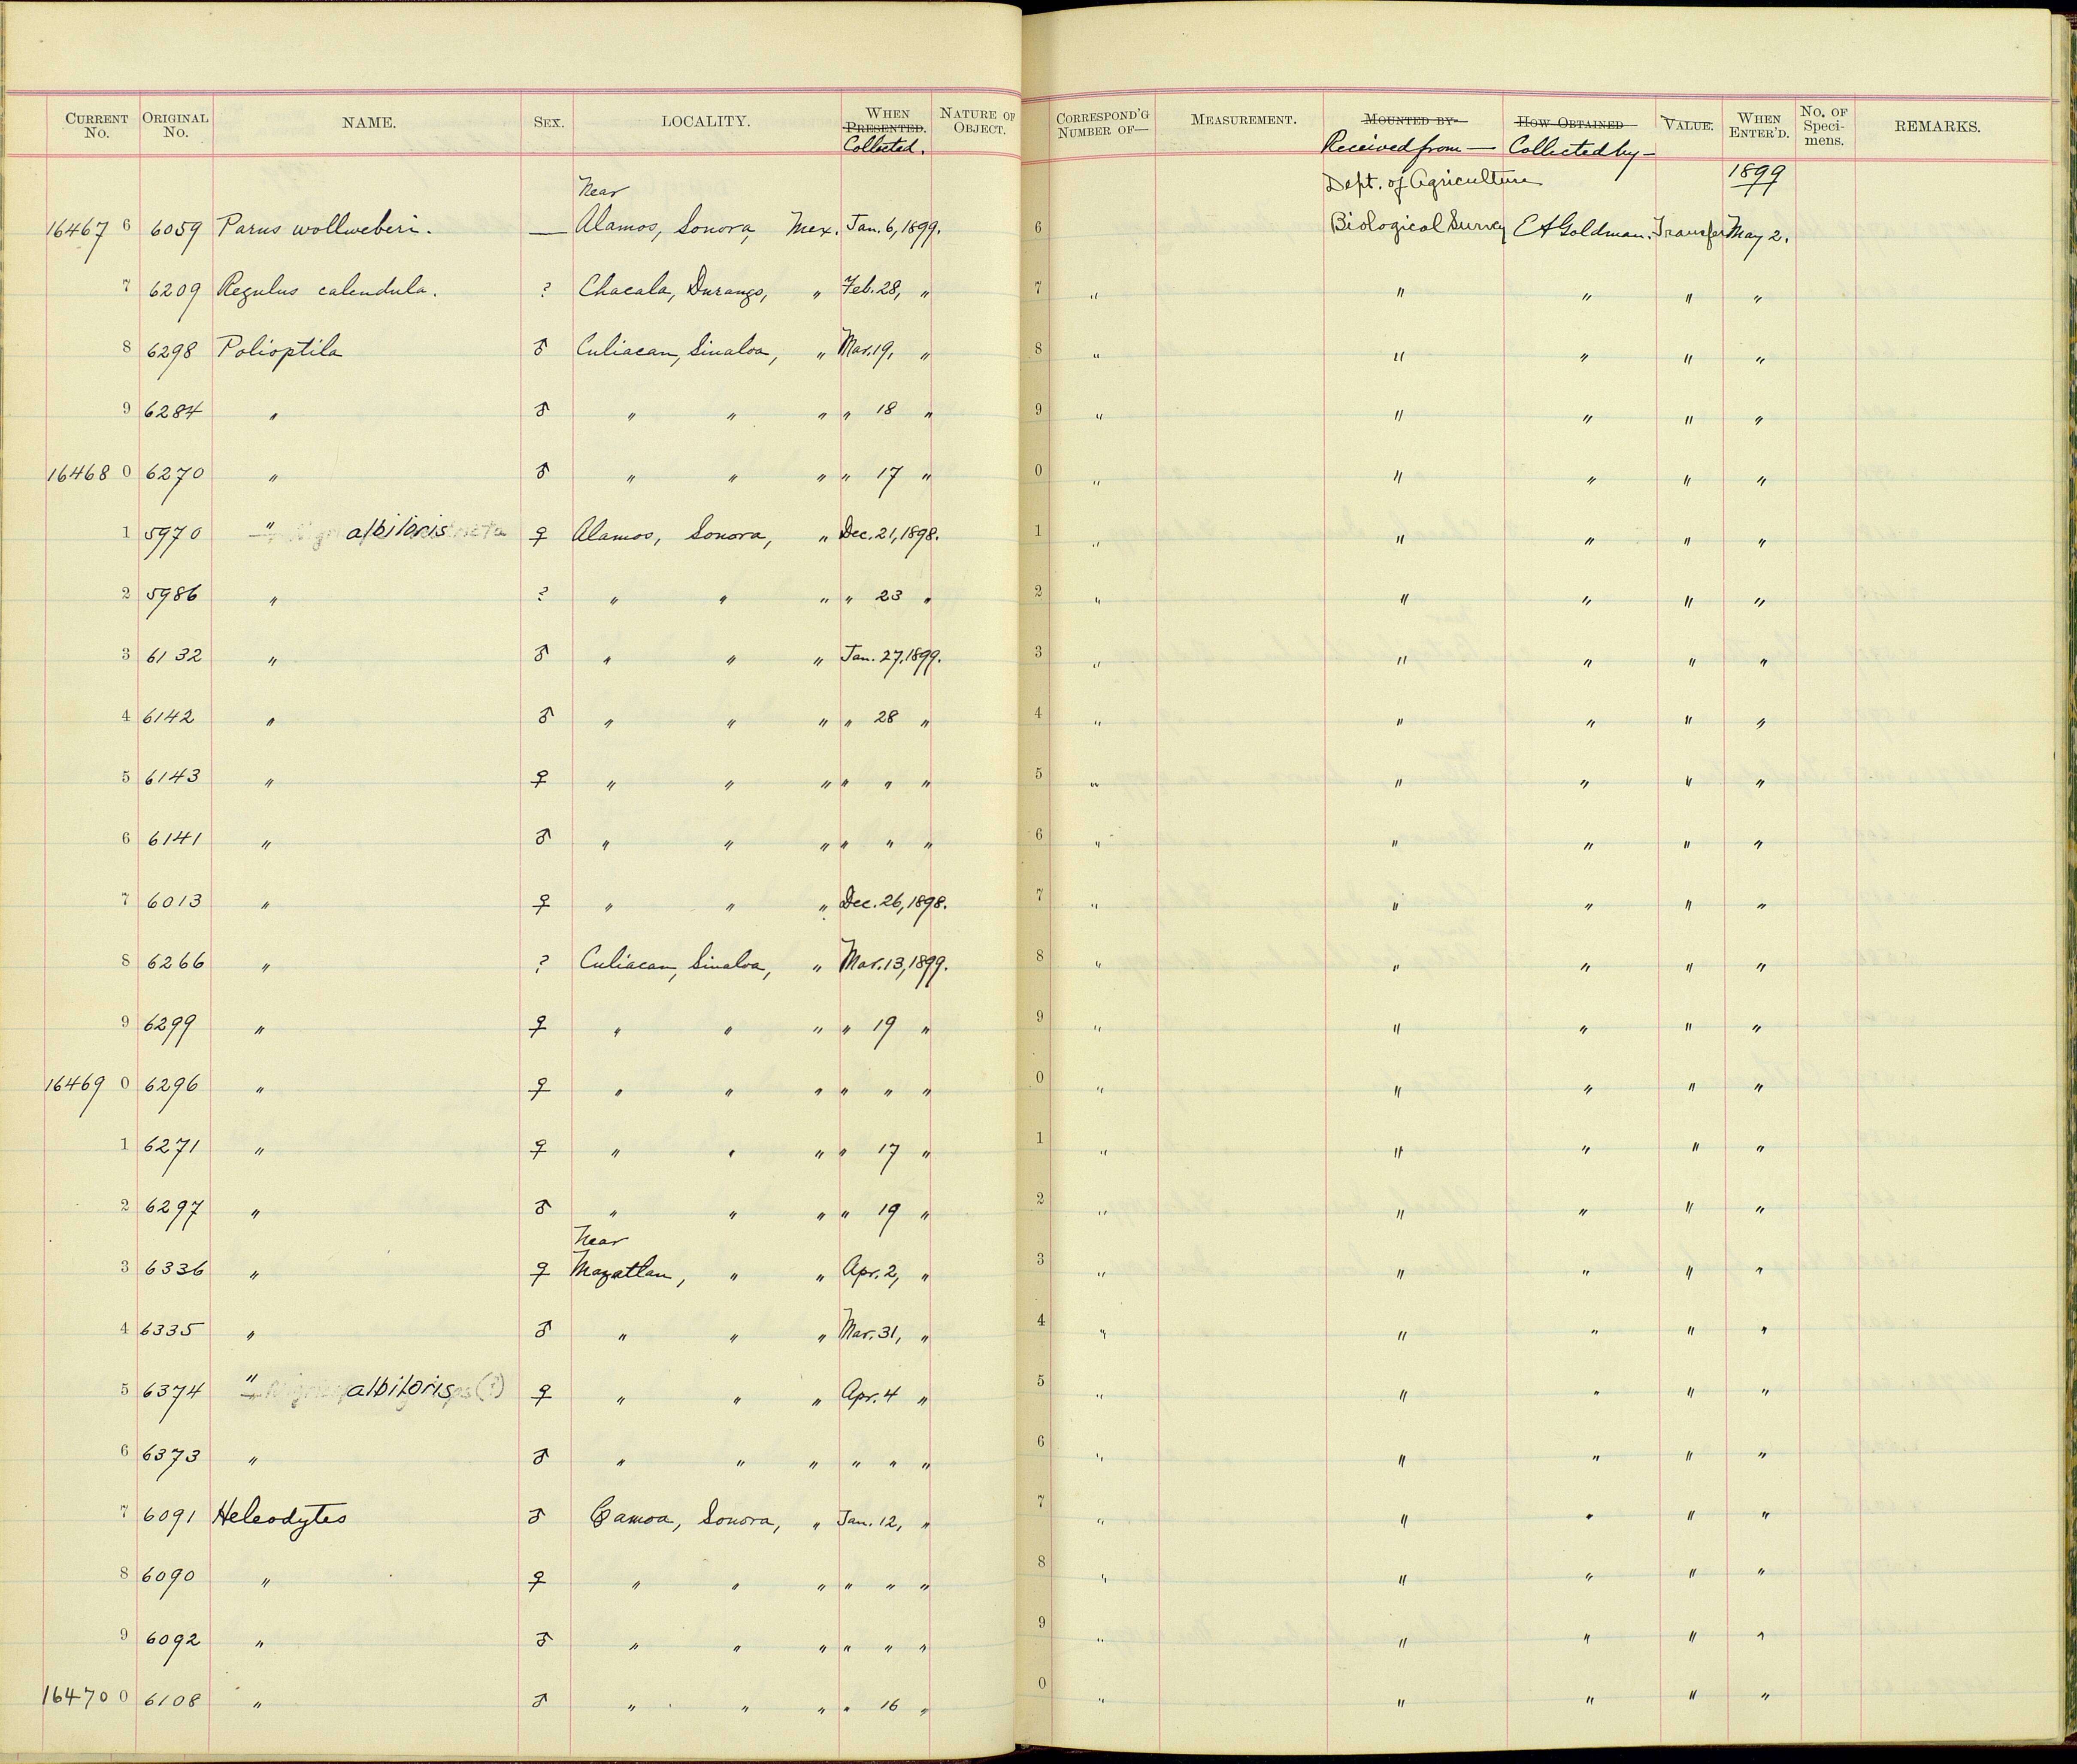 CURRENT No. ORIGINAL No. NAME. SEX. LOCALITY. WHEN PRESENTED. Collected. NATURE OF OBJECT. CORRESPOND'G NUMBER OF— MEASUREMENT. MOUNTED BY- Received from — HOW OBTAINED Collected by — VALUE. WHEN ENTER'D. No. OF Speci-mens. REMARKS.
Near Dept. of Agriculture 1899
16467 6 6059 Parus wollweberi. — Alamos, Sonora, Mex. Jan. 6, 1899. 6 Biological Survey E A Goldman. Transfer May 2.
7 6209 Regulus calendula. ? Chacala, Durango, " Feb. 28, " 7 " " " " "
8 6298 Polioptila ♂ Culiacan, Sinaloa, " Mar. 19, " 8 " " " " "
9 6284 " ♂ " " " " 18 " 9 " " " " "
16468 0 6270 " ♂ " " " " 17 " 0 " " " " "
1 5970 " albiloris ♀ Alamos, Sonora, " Dec. 21, 1898. 1 " " " " "
2 5986 " ? " " " " 23 " 2 " " " " "
3 6132 " ♂ " " " Jan. 27, 1899. 3 " " " " "
4 6142 " ♂ " " " " 28 " 4 " " " " "
5 6143 " ♀ " " " " " " 5 " " " " "
6 6141 " ♂ " " " " " " 6 " " " " "
7 6013 " ♀ " " " Dec. 26, 1898. 7 " " " " "
8 6266 " ? Culiacan, Sinaloa, " Mar. 13, 1899. 8 " " " " "
9 6299 " ♀ " " " " 19 " 9 " " " " "
16469 0 6296 " ♀ " " " " " " 0 " " " " "
1 6271 " ♀ " " " " 17 " 1 " " " " "
2 6297 " ♂ " " " " 19 " 2 " " " " "
Near
3 6336 " ♀ Mazatlan, " " Apr. 2, " 3 " " " " "
4 6335 " ♂ " " " Mar. 31, " 4 " " " " "
5 6374 " albiloris (?) ♀ " " " Apr. 4 " 5 " " " " "
6 6373 " ♂ " " " " " " 6 " " " " "
7 6091 Heleodytes ♂ Camoa, Sonora, " Jan. 12, " 7 " " " " "
8 6090 " ♀ " " " " " " 8 " " " " "
9 6092 " ♂ " " " " " " 9 " " " " "
16470 0 6108 " ♂ " " " " 16 " 0 " " " " "